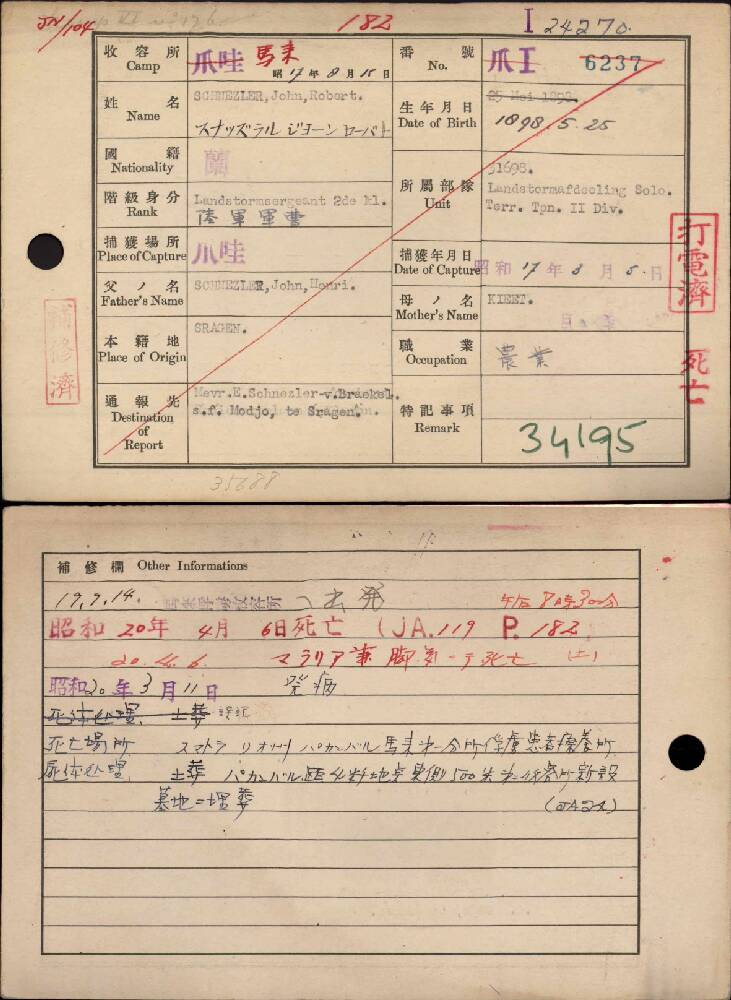 JN/104 182 I 24270.
收容所 Camp 爪哇 馬来 昭17年8月15日 番號 No. 爪I 6237
姓名 Name SCHNEZLER, John, Robert. 生年月日 Date of Birth 25 Mei 1898.
スナッズラル ジョーン ローバト 1898. 5. 25
國籍 Nationality 蘭 所屬部隊 Unit 31698.
階級身分 Rank Landstormsergeant 2de kl. Landstormafdeeling Solo.
陸軍軍曹 Terr. Tpn. II Div.
捕獲場所 Place of Capture 爪哇 捕獲年月日 Date of Capture 昭和17年3月5日
打電濟
父ノ名 Father's Name SCHNEZLER, John, Henri. 母ノ名 Mother's Name KIEET.
本籍地 Place of Origin SRAGEN. 職業 Occupation 農業
補修濟
死亡
通報先 Destination of Report Mevr.E.Schnezler-v.Braekel.
s.f. Modjo, te Sragen. 特記事項 Remark
34195
35688
補修欄 Other Informations
19.7.14. へ出発 午后8時30分
昭和20年4月6日死亡 (JA.119 P. 182
20.4.6. マラリア兼脚気ニテ死亡
昭和20年3月11日 発病
死体処理 土葬
死亡場所 スマトラ リオ州 パカンバル馬来第一分所俘虜患者療養所
死体処理 土葬 パカンバル 500米 新設
墓地ニ埋葬